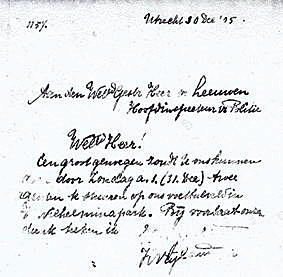 1157.
Utrecht 30 Dec '05.
Aan den WelEd Gestr Heer v. Leeuwen
Hoofdinspecteur v Politie
WelEd Heer!
Een groot genoegen zoudt U ons kunnen
door Zondag a.s. (31 Dec) twee
te sturen op ons voetbalveld in
't Wilhelminapark. Bij voorbaat onze
dank teken ik